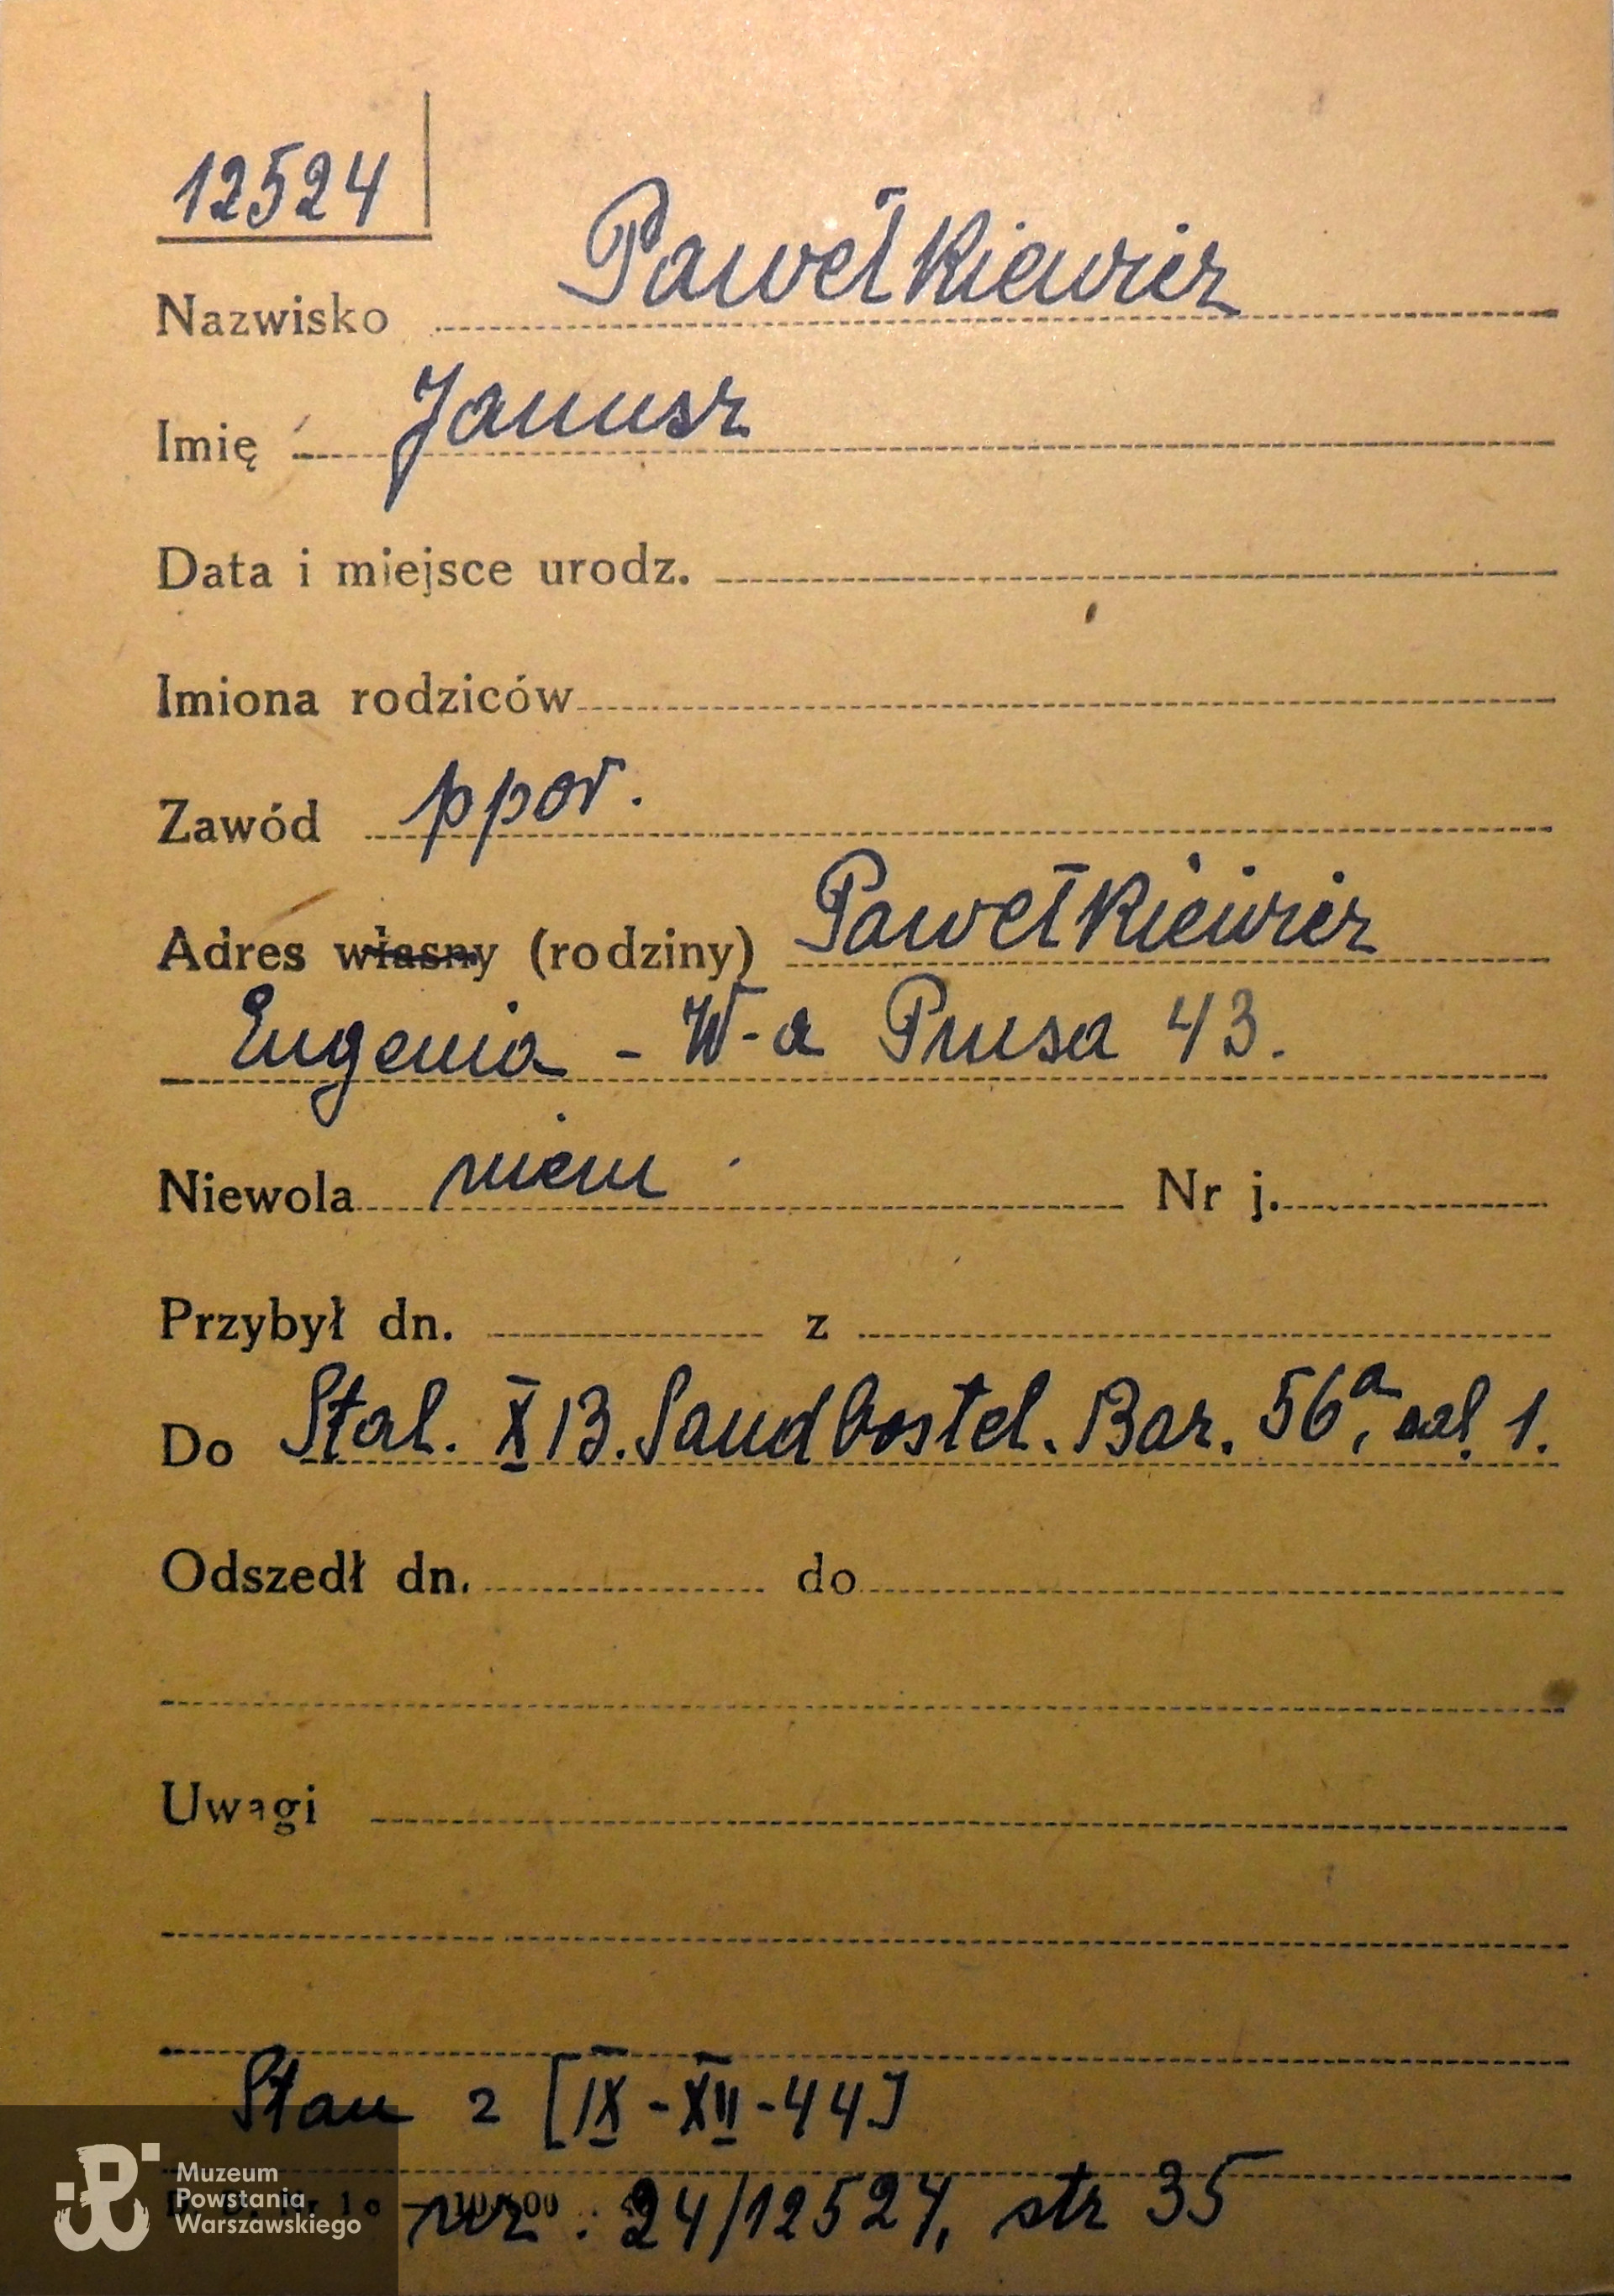 12524
Nazwisko Pawełkiewicz
Imię Janusz
Data i miejsce urodz.
Imiona rodziców
Zawód ppor.
Adres własny (rodziny) Pawełkiewicz
Eugenia - W-a Prusa 43.
Niewola niem Nr j.
Przybył dn. z
Do Stal. X B. Sandbostel. Bar. 56a, sal. 1.
Odszedł dn. do
Uwagi
Stan z [IX-XII-44]
: 24/12524, str 35
Muzeum
Powstania
Warszawskiego